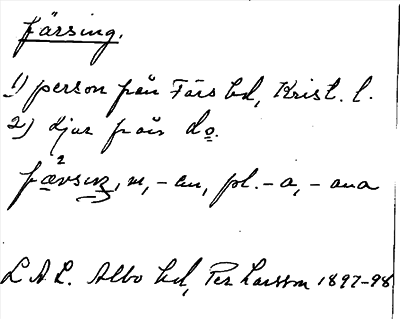 färsing.
1) person från Färs hd, Krist. l.
2) djur från do.
fævsıŋ, m, -en, pl. -a, -ana
L.A.L. Albo hd, Per Larsson 1897-98